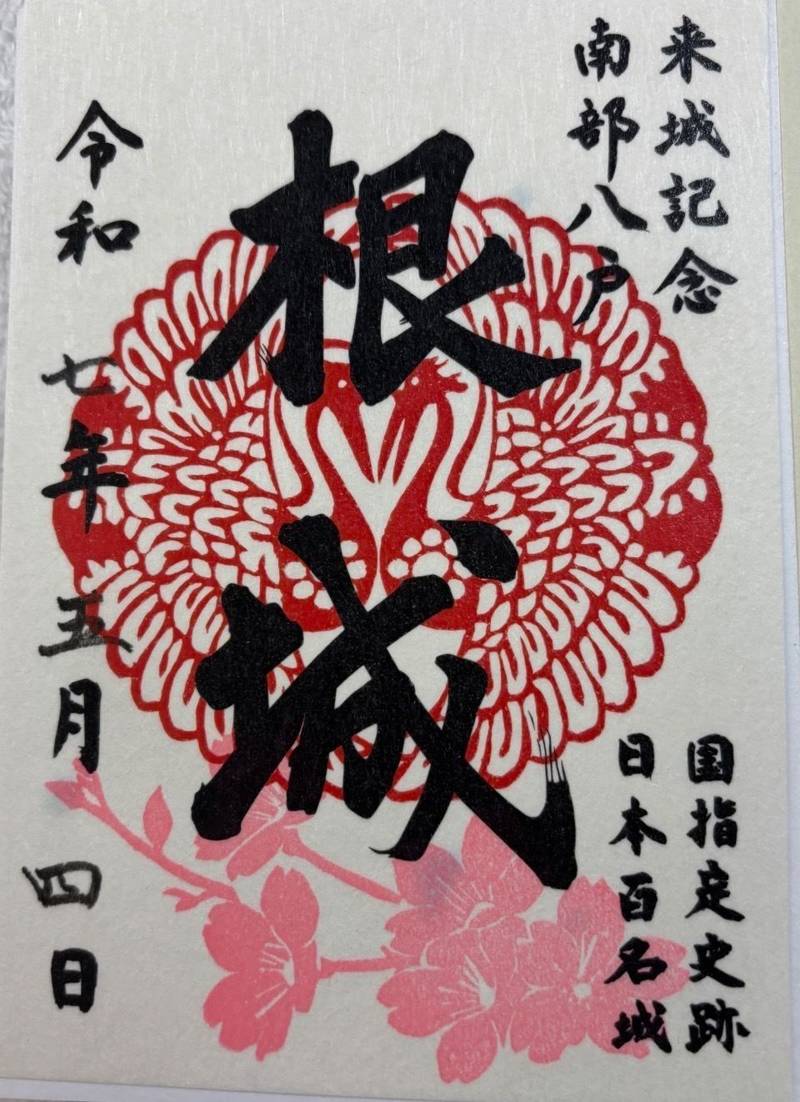 来城記念
南部八戸
国指定史跡
日本百名城
根城
令和七年五月四日